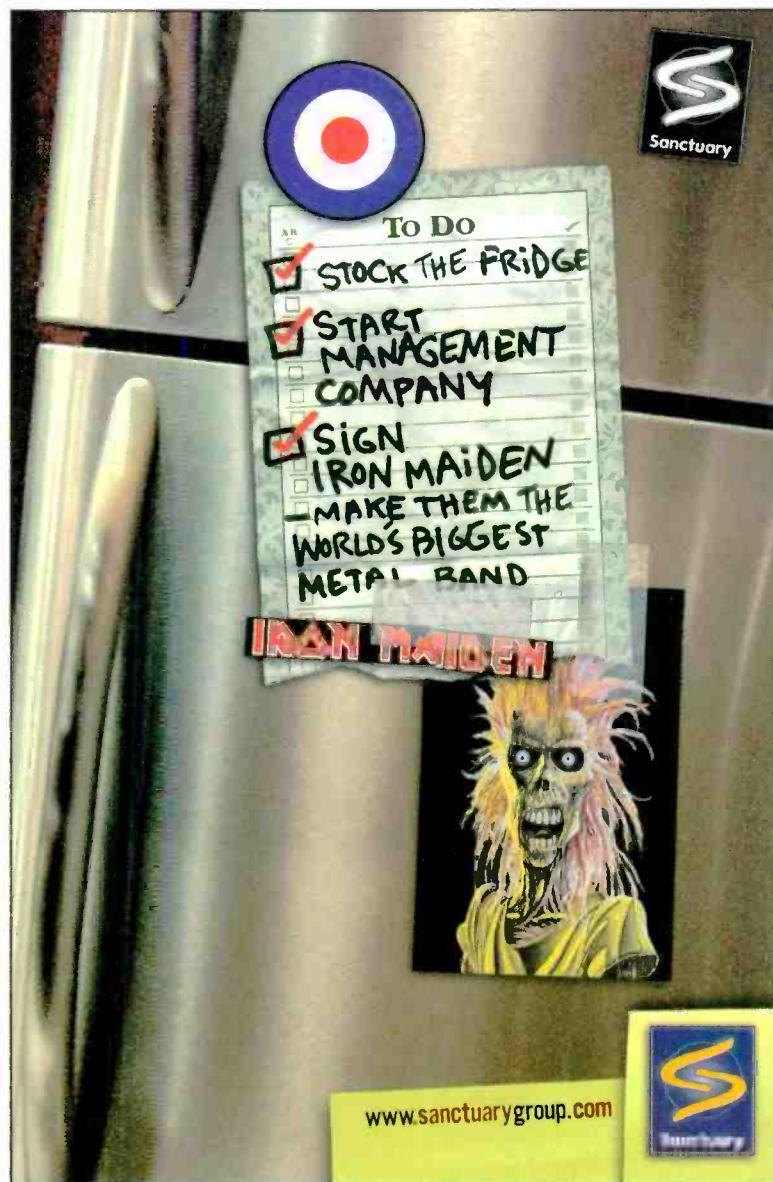 Sanctuary
AB
C
To Do
STOCK THE FRiDGE
START
MANAGEMENT
COMPANY
SiGN
IRON MAiDEN
-MAKE THEM THE
WORLD'S BIGGEST
METAL BAND
IRON MAIDEN
www.sanctuarygroup.com
Sanctuary